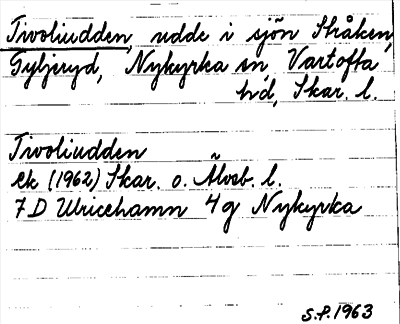 Tivoliudden, udde i sjön Stråken,
Gyljeryd, Nykyrka sn, Vartofta
hd, Skar. l.
Tivoliudden
ek (1962) Skar. o. Älvsb. l.
7D Ulricehamn 4g Nykyrka
S.P. 1963